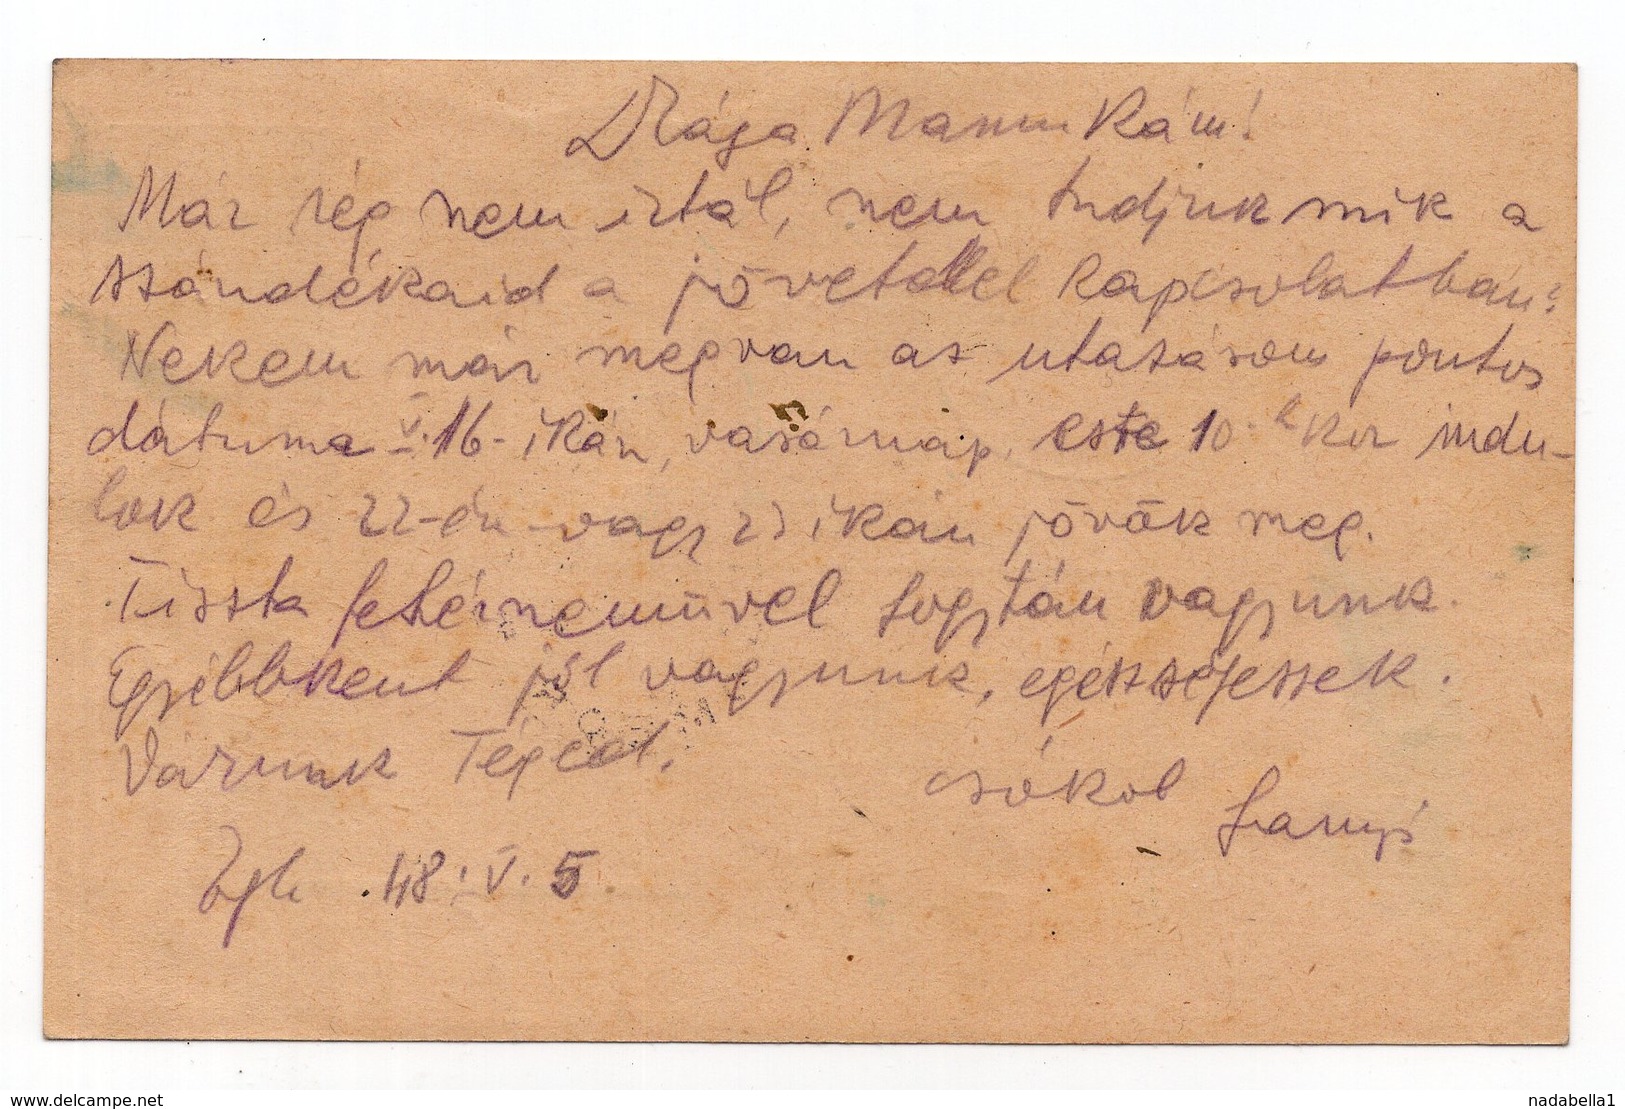 Drága Mamukám!
Már rég nem írtál, nem tudjuk mik a
szándékaid a jövetellel kapcsolatban?
Nekem már megvan az utazásom pontos
dátuma V. 16-ikán, vasárnap, este 10 h kor indu-
lok és 22-én vagy 23 ikán jövök meg.
Tiszta fehérneművel fogytán vagyunk.
Egyébbként jól vagyunk, egészségessek.
Várunk Téged.
csókol
Zgb. 48. V. 5
www.delcampe.net
nadabella1